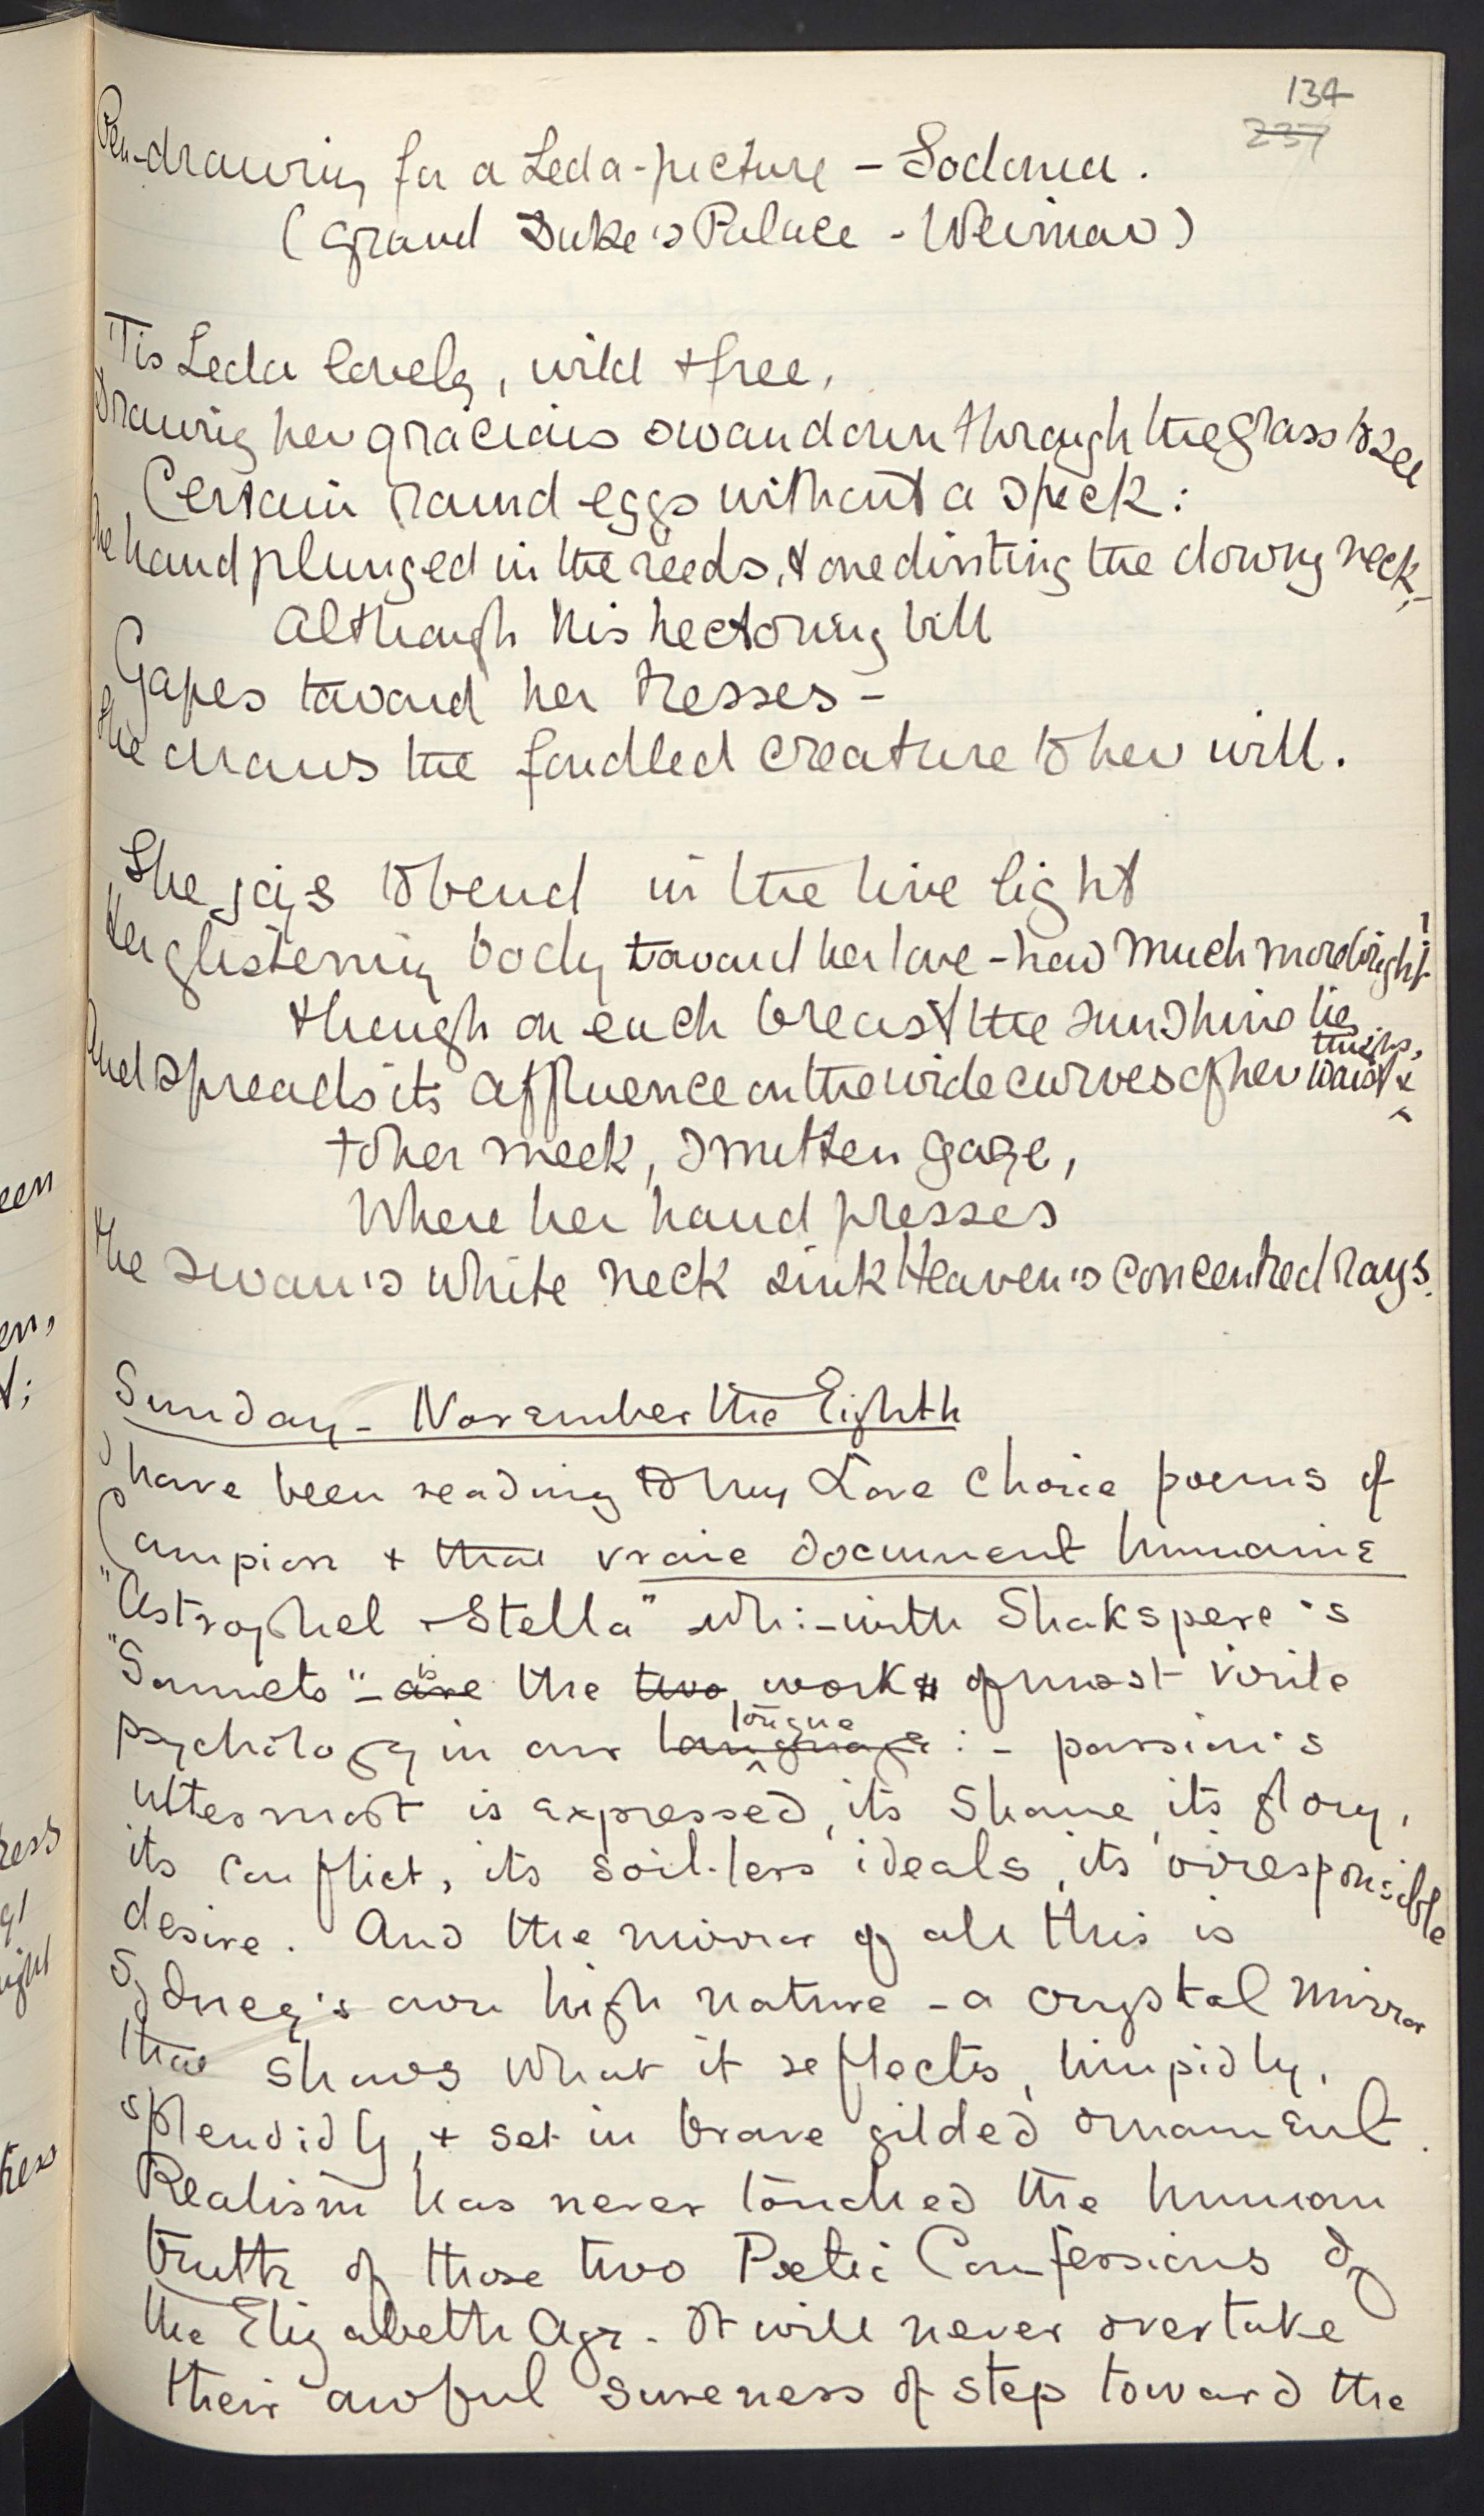 134
237
Pen-drawing for a Leda-picture – Sodoma.
(Grand Duke's Palace – Weimar)
'Tis Leda lovely, wild & free,
Drawing her gracious swan down through the grass to see
Certain round eggs without a speck:
One hand plunged in the reeds, & one dinting the downy neck,
Although his hectoring bill
Gapes toward her tresses –
She draws the fondled creature to her will.
She joys to bend in the live light
Her glistening body toward her love – how much more bright!
Though on each breast the sunshine lie
And spreads its affluence on the wide curves of her waist & thighs,
To her meek, smitten gaze,
Where her hand presses
The swan's white neck sink Heaven's concentred rays.
Sunday – November the Eighth
I have been reading to my Love choice poems of
Campion & that vraie document humaine
"Astrophel & Stella" wh: – with Shakspere's
"Sonnets" – are is the two works of most virile
psychology in our language tongue: – passion's
uttermost is expressed, its shame, its glory,
its conflict, its soil-less ideals, its irresponsible
desire. And the mirror of all this is
Sydney's own high nature – a crystal mirror
that shows what it reflects, limpidly,
splendidly, & set in brave gilded ornament.
Realism has never touched the human
truth of those two Poetic Confessions of
the Elizabeth Age. It will never overtake
their awful sureness of step toward the
een
en,
t;
ress
ight
tress